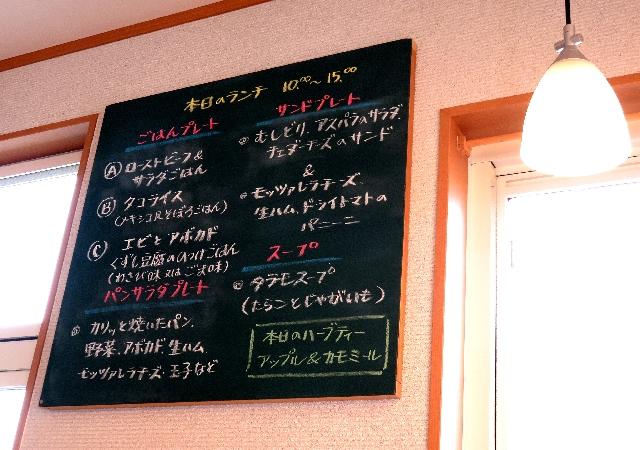 本日のランチ 10:00〜15:00
ごはんプレート
Ⓐ ローストビーフ&
サラダごはん
Ⓑ タコライス
(メキシコ風そぼろごはん)
Ⓒ エビとアボカド
くずし豆腐のっけごはん
(わさび味又はごま味)
パンサラダプレート
カリッと焼いたパン、
野菜、アボカド、生ハム、
モッツァレラチーズ、玉子など
サンドプレート
むしどり、アスパラのサラダ、
チェダーチーズのサンド
&
モッツァレラチーズ、
生ハム、ドライトマトの
パニーニ
スープ
タラモスープ
(たらことじゃがいも)
本日のハーブティー
アップル&カモミール